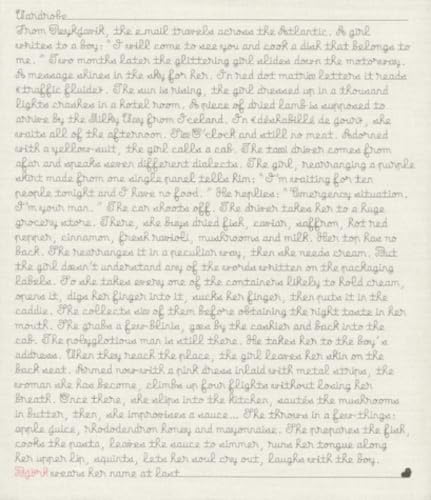 Wardrobe
From Reykjavik, the email travels across the Atlantic. A girl
writes to a boy: "I will come to see you and cook a dish that belongs to
me." Two months later the glittering girl slides down the motorway.
A message shines in the sky for her. In red dot matrix letters it reads
«traffic fluide». The sun is rising, the girl dressed up in a thousand
lights crashes in a hotel room. A piece of dried lamb is supposed to
arrive by the Milky Way from Iceland. In «déshabillé de jour», she
waits all of the afternoon. Six O'clock and still no meat. Adorned
with a yellow-suit, the girl calls a cab. The taxi driver comes from
afar and speaks seven different dialects. The girl, rearranging a purple
skirt made from one single panel tells him: "I'm waiting for ten
people tonight and I have no food." He replies: "Emergency situation.
I'm your man." The car shoots off. The driver takes her to a huge
grocery store. There, she buys dried fish, caviar, saffron, hot red
pepper, cinnamon, fresh ravioli, mushrooms and milk. Her top has no
back. She rearranges it in a peculiar way, then she needs cream. But
the girl doesn't understand any of the words written on the packaging
labels. So she takes every one of the containers likely to hold cream,
opens it, digs her finger into it, sucks her finger, then puts it in the
caddie. She collects six of them before obtaining the right taste in her
mouth. She grabs a few blinis, goes by the cashier and back into the
cab. The polyglotious man is still there. He takes her to the boy's
address. When they reach the place, the girl leaves her skin on the
back seat. Armed now with a pink dress inlaid with metal strips, the
woman she has become, climbs up four flights without losing her
breath. Once there, she slips into the kitchen, sautés the mushrooms
in butter, then, she improvises a sauce... She throws in a few things:
apple juice, rhododendron honey and mayonnaise. She prepares the fish,
cooks the pasta, leaves the sauce to simmer, runs her tongue along
her upper lip, squints, lets her soul cry out, laughs with the boy.
Björk wears her name at last